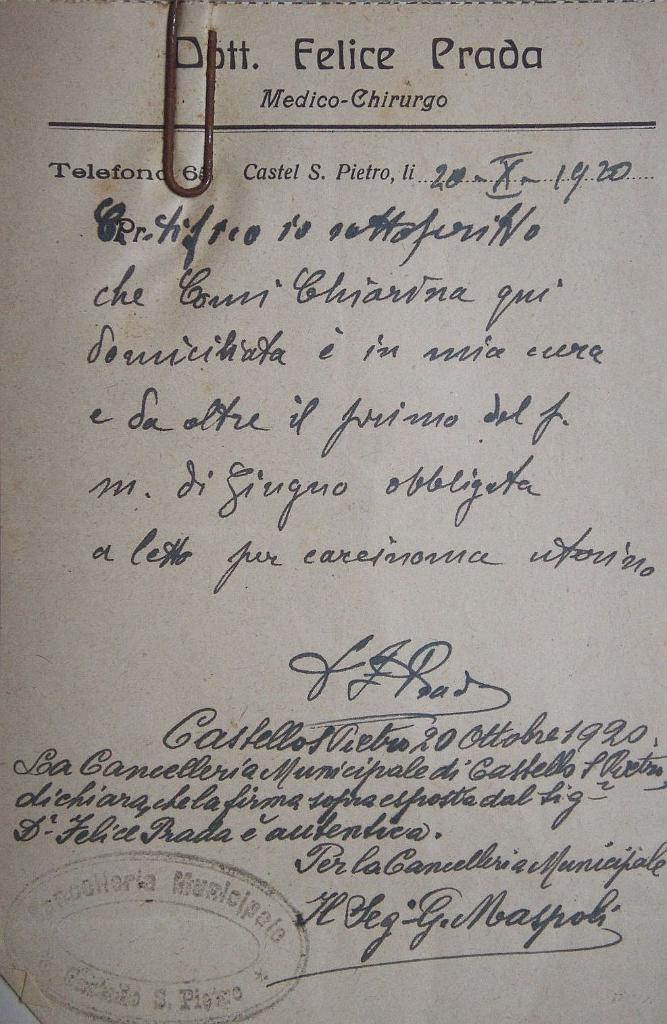 Dott. Felice Prada
Medico-Chirurgo
Telefono 65 Castel S. Pietro, li 20 - X - 1920
Pr. Certifico io sottoscritto
che Comi Chiarina qui
domiciliata è in mia cura
e da oltre il primo del p.
m. di Giugno obbligata
a letto per carcinoma uterino
Dr F Prada
Castello S Pietro 20 Ottobre 1920.
La Cancelleria Municipale di Castello S Pietro
dichiara, che la firma sopra esposta dal Sigr
Dr Felice Prada è autentica.
Per la Cancelleria Municipale
Il Seg. G. Maspoli
Cancelleria Municipale
Castello S. Pietro